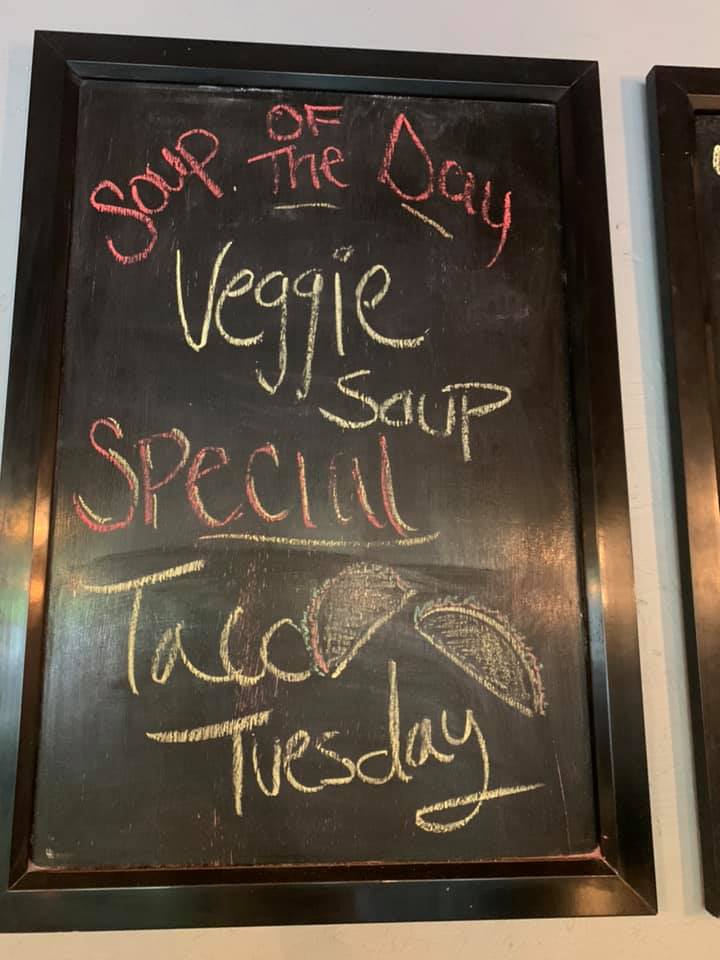 Soup OF The Day
Veggie
Soup
Special
Taco
Tuesday